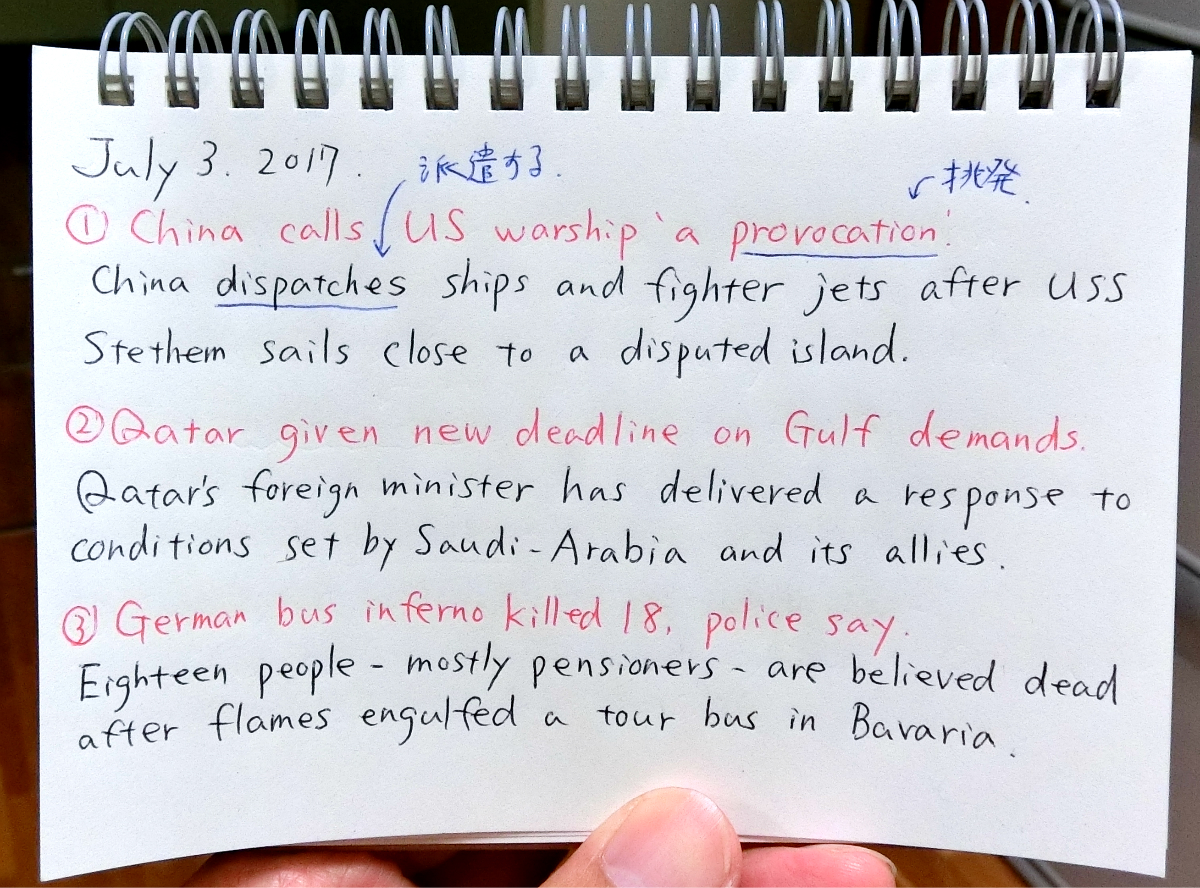 July 3. 2017.
派遣する.
挑発.
① China calls US warship 'a provocation'.
China dispatches ships and fighter jets after USS
Stethem sails close to a disputed island.
② Qatar given new deadline on Gulf demands.
Qatar's foreign minister has delivered a response to
conditions set by Saudi-Arabia and its allies.
③ German bus inferno killed 18, police say.
Eighteen people - mostly pensioners - are believed dead
after flames engulfed a tour bus in Bavaria.